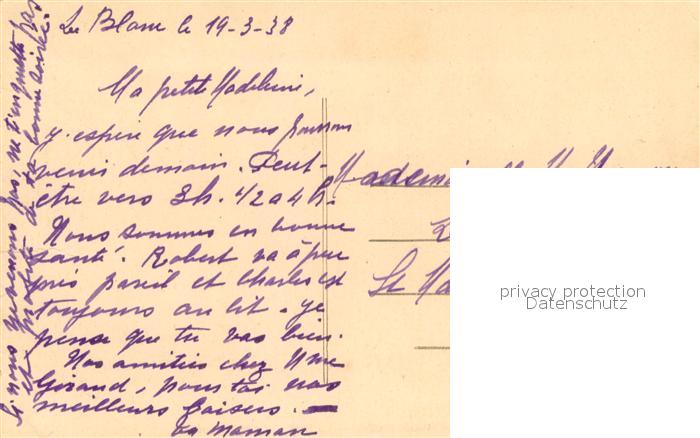 Le Blanc le 19-3-38
Ma petite Madeleine,
J'espère que nous pourrons
venir demain. Peut-
être vers 3h.1/2 a 4h.
Nous sommes en bonne
santé. Robert va à peu
près pareil et Charles est
toujours au lit. Je
pense que tu vas bien.
Nos amitiés chez Mme
Giraud, pour toi nos
meilleurs baisers.
ta maman
Si nous ne venons pas, ne t'inquiète pas
et de ta bonne soirée.
Mademoiselle M.
St
privacy protection
Datenschutz